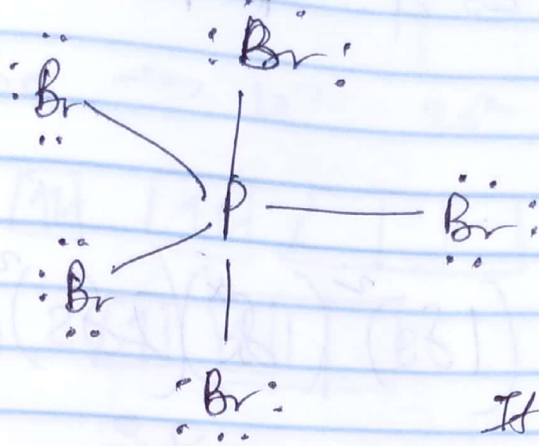 Br
Br
P Br
Br
Br
If